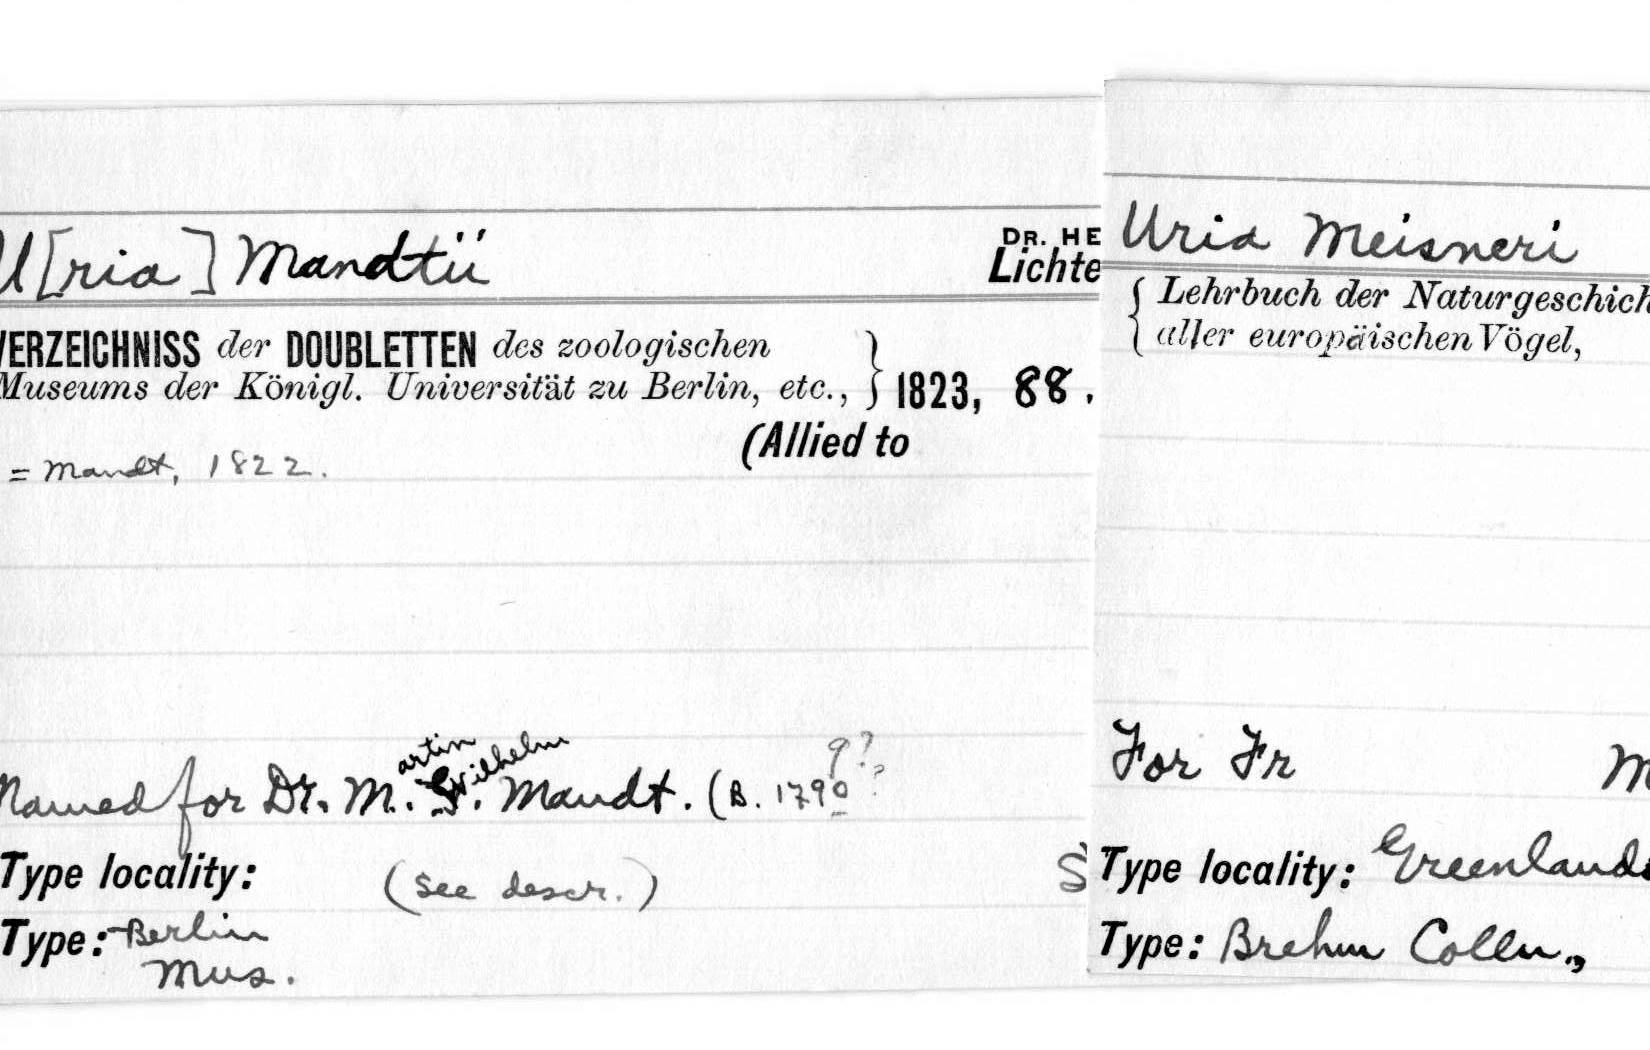 U[ria] Mandtii
DR. HE
Lichte
VERZEICHNISS der DOUBLETTEN des zoologischen
Museums der Königl. Universität zu Berlin, etc., } 1823, 88.
(Allied to
= Mandt, 1822.
artin Wilhelm
9??
Named for Dr. M. W. Mandt. (B. 1790
Type locality: (See descr.) S
Type: Berlin
Mus.
Uria Meisneri
{ Lehrbuch der Naturgeschich
aller europäischen Vögel,
For Fr M
Type locality: Greenland
Type: Brehm Colln.,